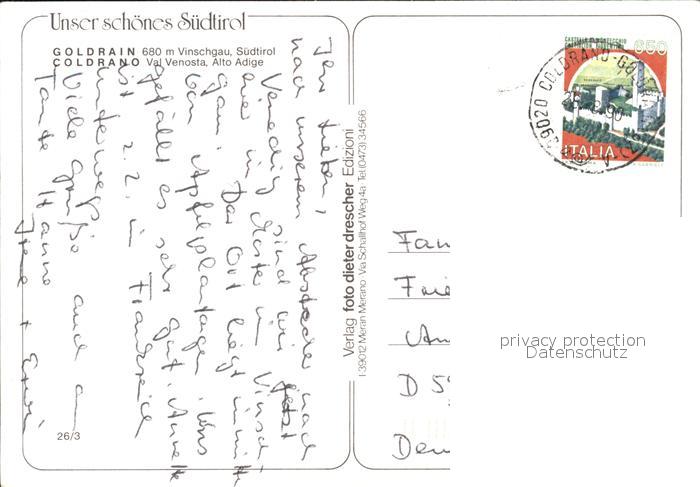 Unser schönes Südtirol
GOLDRAIN 680 m Vinschgau, Südtirol
COLDRANO Val Venosta, Alto Adige
Ihr Lieben,
nach unserem Abstecher nach
Venedig sind wir jetzt
hier in Kortsch im Vinsch-
gau. Der Ort liegt inmitten
von Apfelplantagen. Uns
gefällt es sehr gut. Annette
ist z.Z. in Frankreich
unterwegs
Viele Grüße auch an
Tante Hanne
26/3
Verlag foto dieter drescher Edizioni
I-39012 Meran Merano · Via Schallhof Weg 4a · Tel. (0473) 34566
650
ITALIA
39020 COLDRANO-GOLDRAIN
90
Fam
D 5
privacy protection
Datenschutz